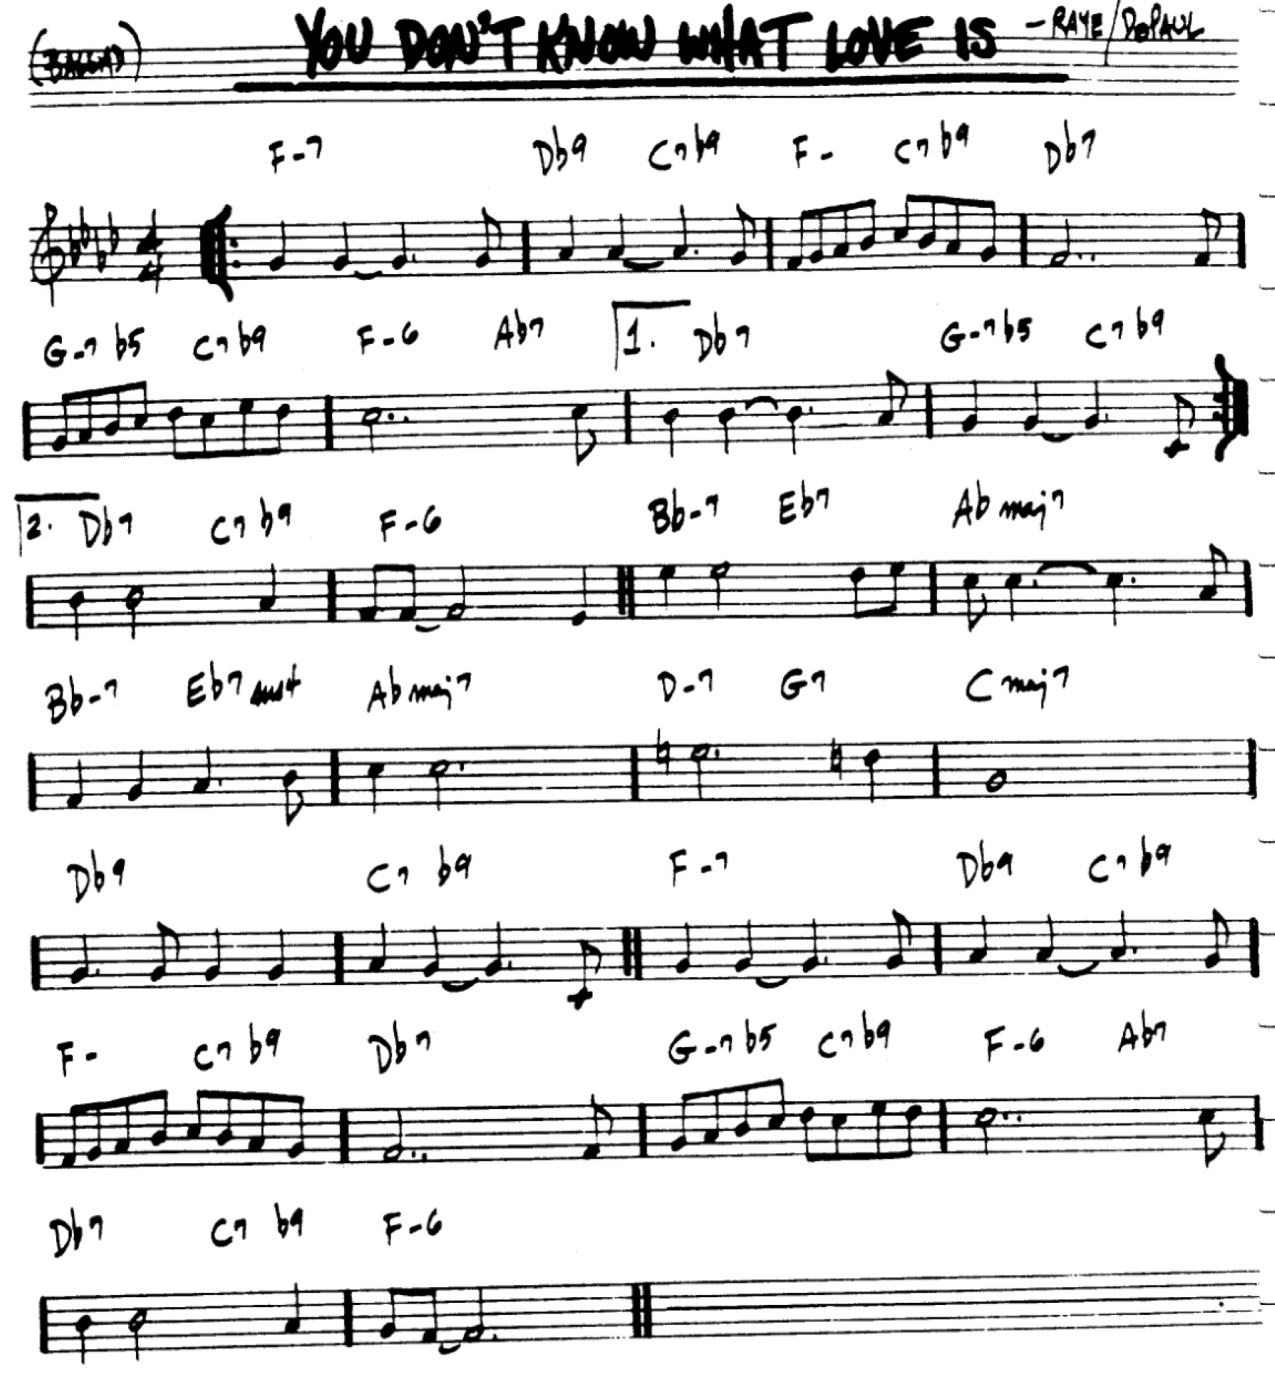 (BALLAD) YOU DON'T KNOW WHAT LOVE IS - RAYE/DEPAUL
F-7 Db9 C7b9 F- C7b9 Db7
G-7b5 C7b9 F-6 Ab7 1. Db7 G-7b5 C7b9
2. Db7 C7b9 F-6 Bb-7 Eb7 Abmaj7
Bb-7 Eb7sus4 Abmaj7 D-7 G7 Cmaj7
Db9 C7b9 F-7 Db9 C7b9
F- C7b9 Db7 G-7b5 C7b9 F-6 Ab7
Db7 C7b9 F-6